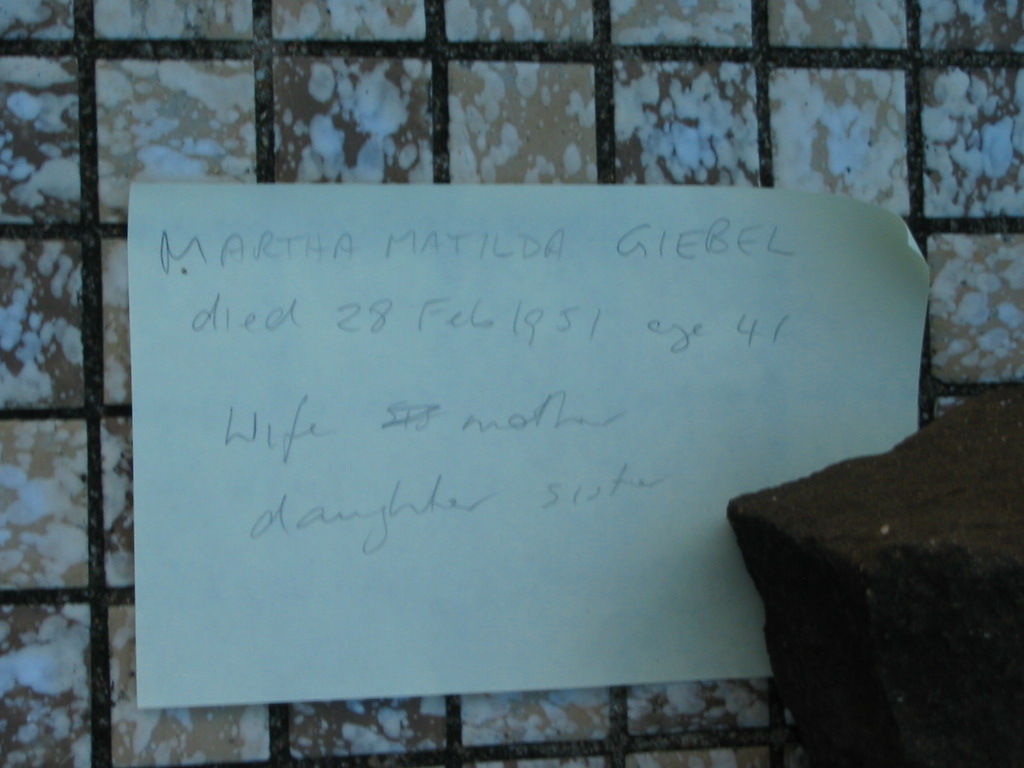 MARTHA MATILDA GIEBEL
died 28 Feb 1951 age 41
Wife mother
daughter sister